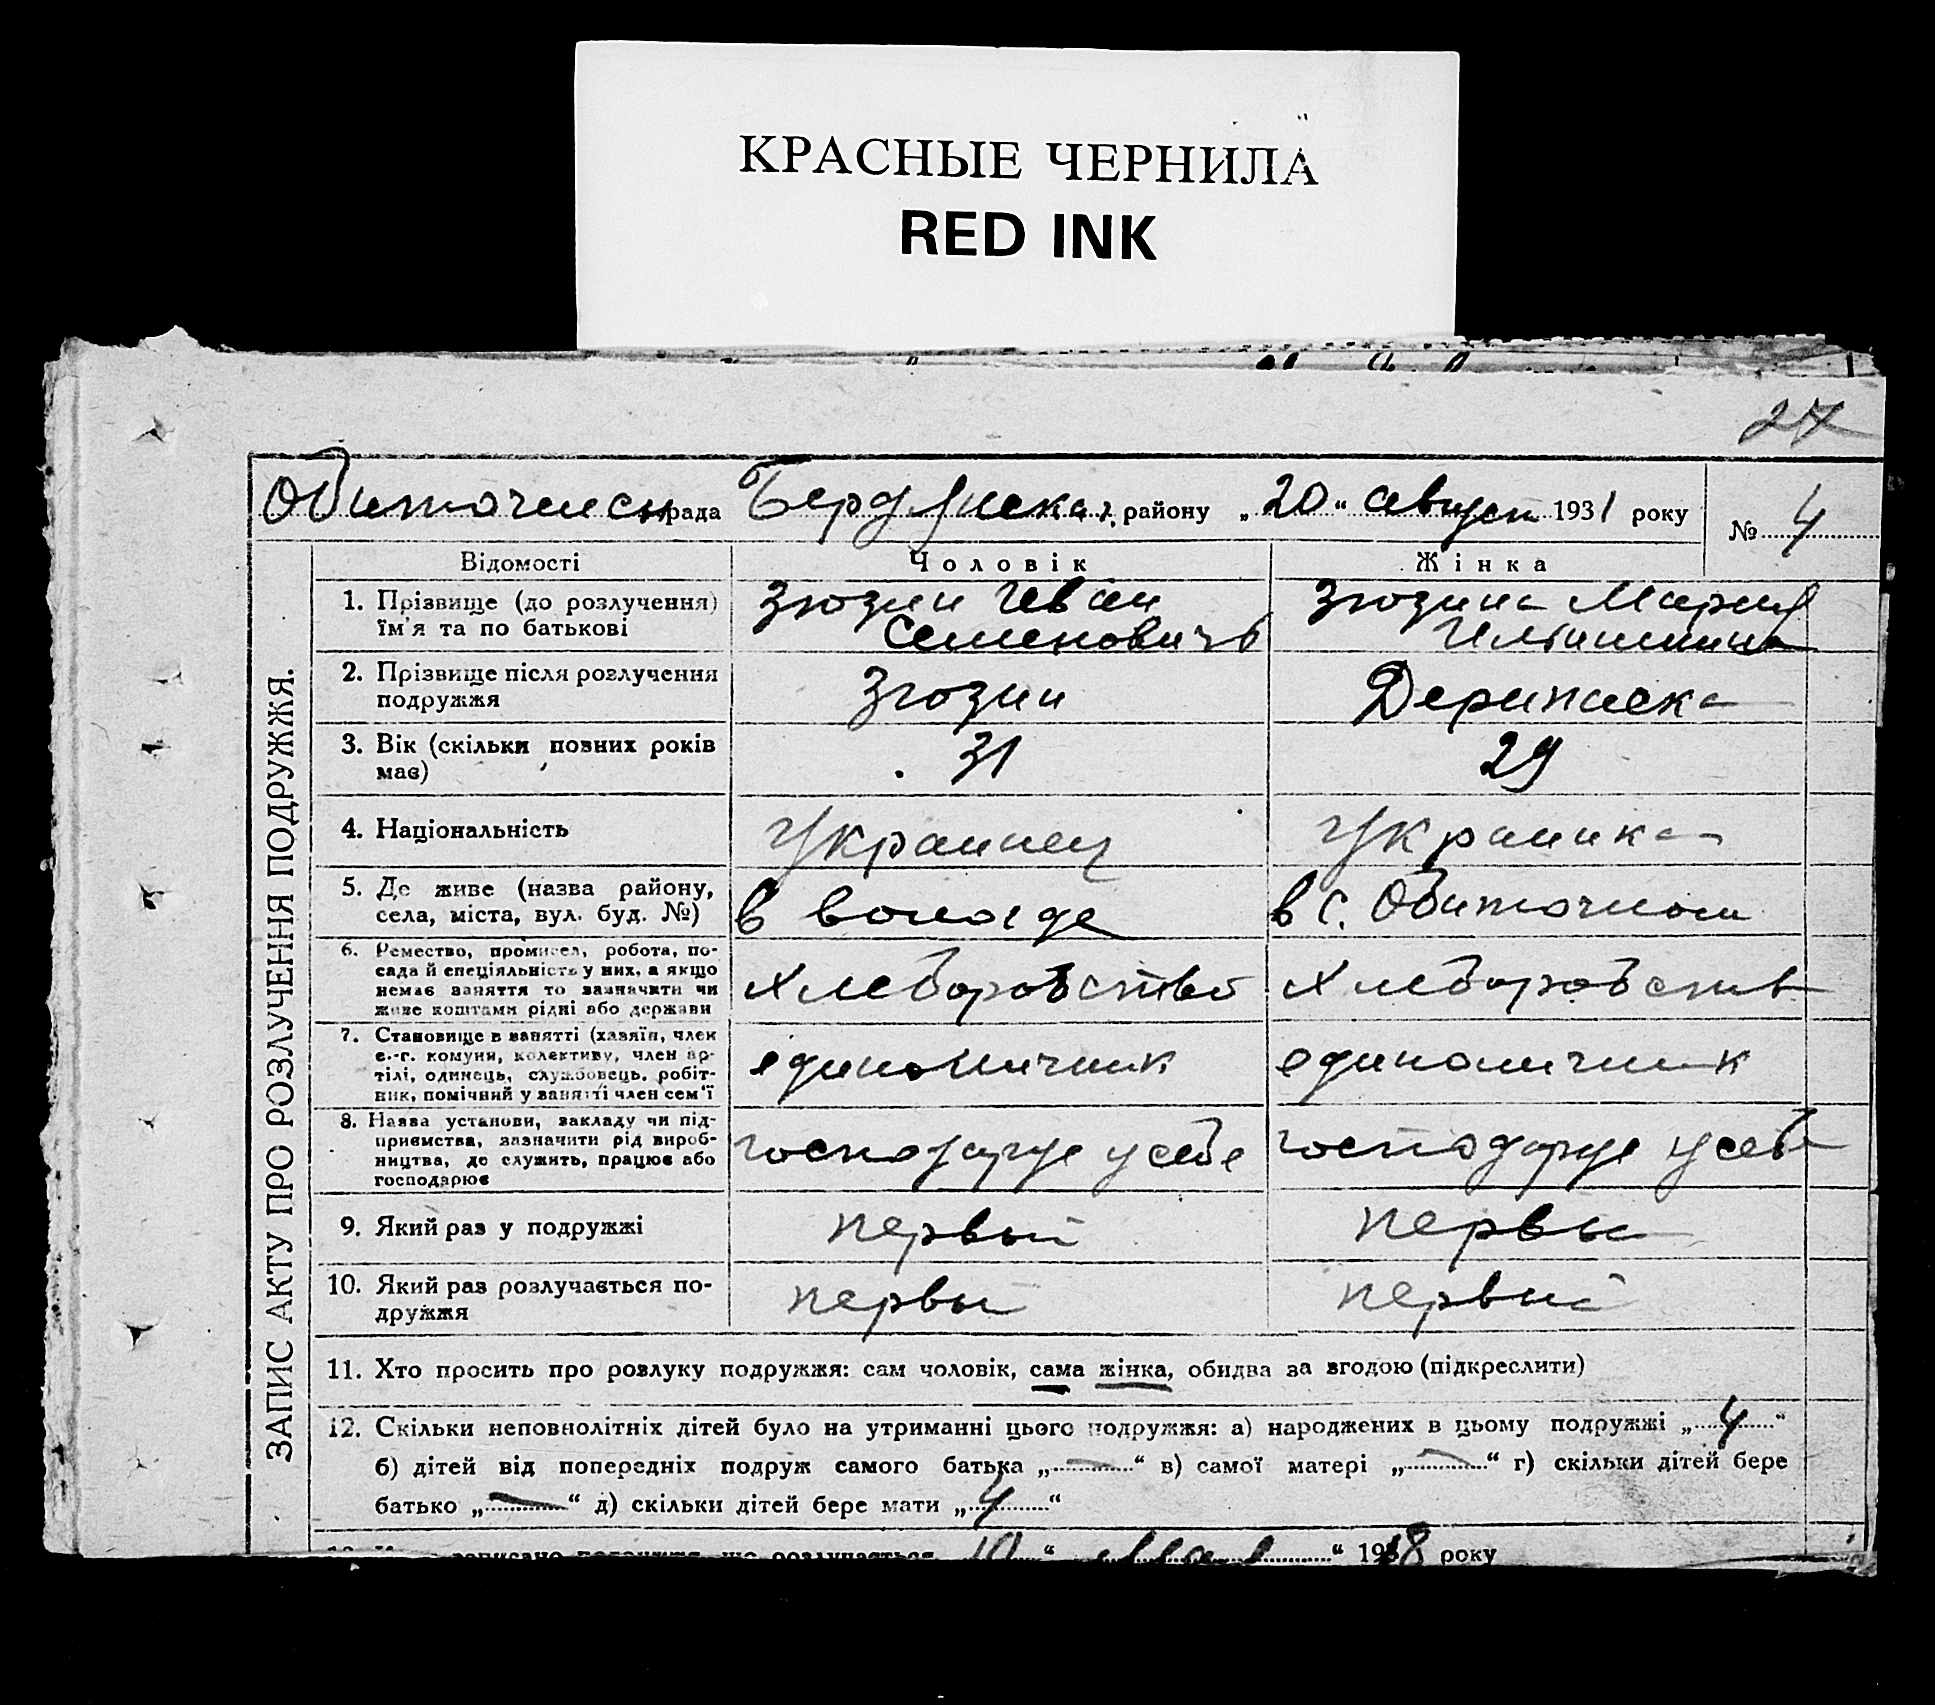 КРАСНЫЕ ЧЕРНИЛА
RED INK
27
Обиточенск рада Бердянская району „20“ август 1931 року № 4
ЗАПИС АКТУ ПРО РОЗЛУЧЕННЯ ПОДРУЖЖЯ.
Відомості Чоловік Жінка
1. Прізвище (до розлучення) Зюзин Иван Зюзина Мария
їм'я та по батькові Семеновичъ
2. Прізвище після розлучення Зюзин Дерипаска
подружжя
3. Вік (скільки повних років 31 29
має)
4. Національність Украинец Украинка
5. Де живе (назва району, в вологде в с. Обиточном
села, міста, вул. буд. №)
6. Ремество, промисел, робота, по-
сада й спеціяльність у них, а якщо хлеборобство хлеборобств
немає заняття то зазначити чи
живе коштами рідні або держави
7. Становище в занятті (хазяїн, член
с.-г. комуни, колективу, член ар- единоличник единоличник
тілі, одинець, службовець, робіт-
ник, помічний у занятті член сем'ї
8. Назва установи, закладу чи під-
приємства, зазначити рід вироб- господарує у себе господарує у себе
ництва, де служить, працює або
господарює
9. Який раз у подружжі первый первы
10. Який раз розлучається по- первы первый
дружжя
11. Хто просить про розлуку подружжя: сам чоловік, сама жінка, обидва за згодою (підкреслити)
12. Скільки неповнолітніх дітей було на утриманні цього подружжя: а) народжених в цьому подружжі „4“
б) дітей від попередніх подруж самого батька „—“ в) самої матері „—“ г) скільки дітей бере
батько „—“ д) скільки дітей бере мати „4“
записано подружжя, що розлучається 10 “ року